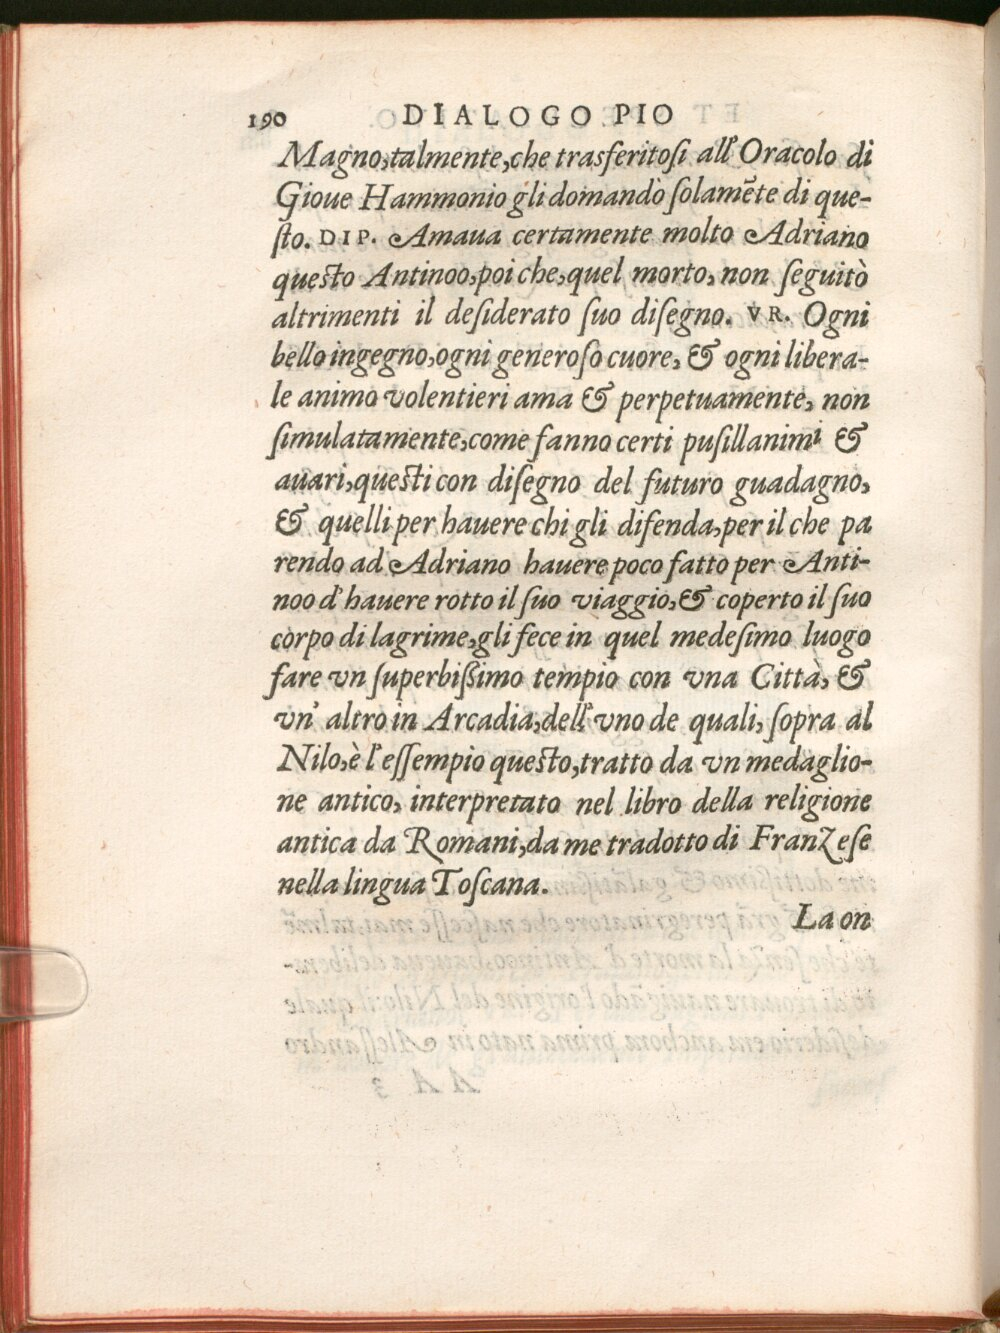 190 DIALOGO PIO
Magno, talmente, che trasferitoſi all'Oracolo di
Gioue Hammonio gli domandò ſolamẽte di que-
ſto. DIP. Amaua certamente molto Adriano
queſto Antinoo, poi che, quel morto, non ſeguitò
altrimenti il deſiderato ſuo diſegno. VR. Ogni
bello ingegno, ogni generoſo cuore, & ogni libera-
le animo volentieri ama & perpetuamente, non
ſimulatamente, come fanno certi puſillanimi &
auari, queſti con diſegno del futuro guadagno,
& quelli per hauere chi gli difenda, per il che pa
rendo ad Adriano hauere poco fatto per Anti-
noo d'hauere rotto il ſuo viaggio, & coperto il ſuo
corpo di lagrime, gli fece in quel medeſimo luogo
fare vn ſuperbiſſimo tempio con vna Città, &
vn' altro in Arcadia, dell'vno de quali, ſopra al
Nilo, è l'eſſempio queſto, tratto da vn medaglio-
ne antico, interpretato nel libro della religione
antica da Romani, da me tradotto di Franzeſe
nella lingua Toſcana.
La on